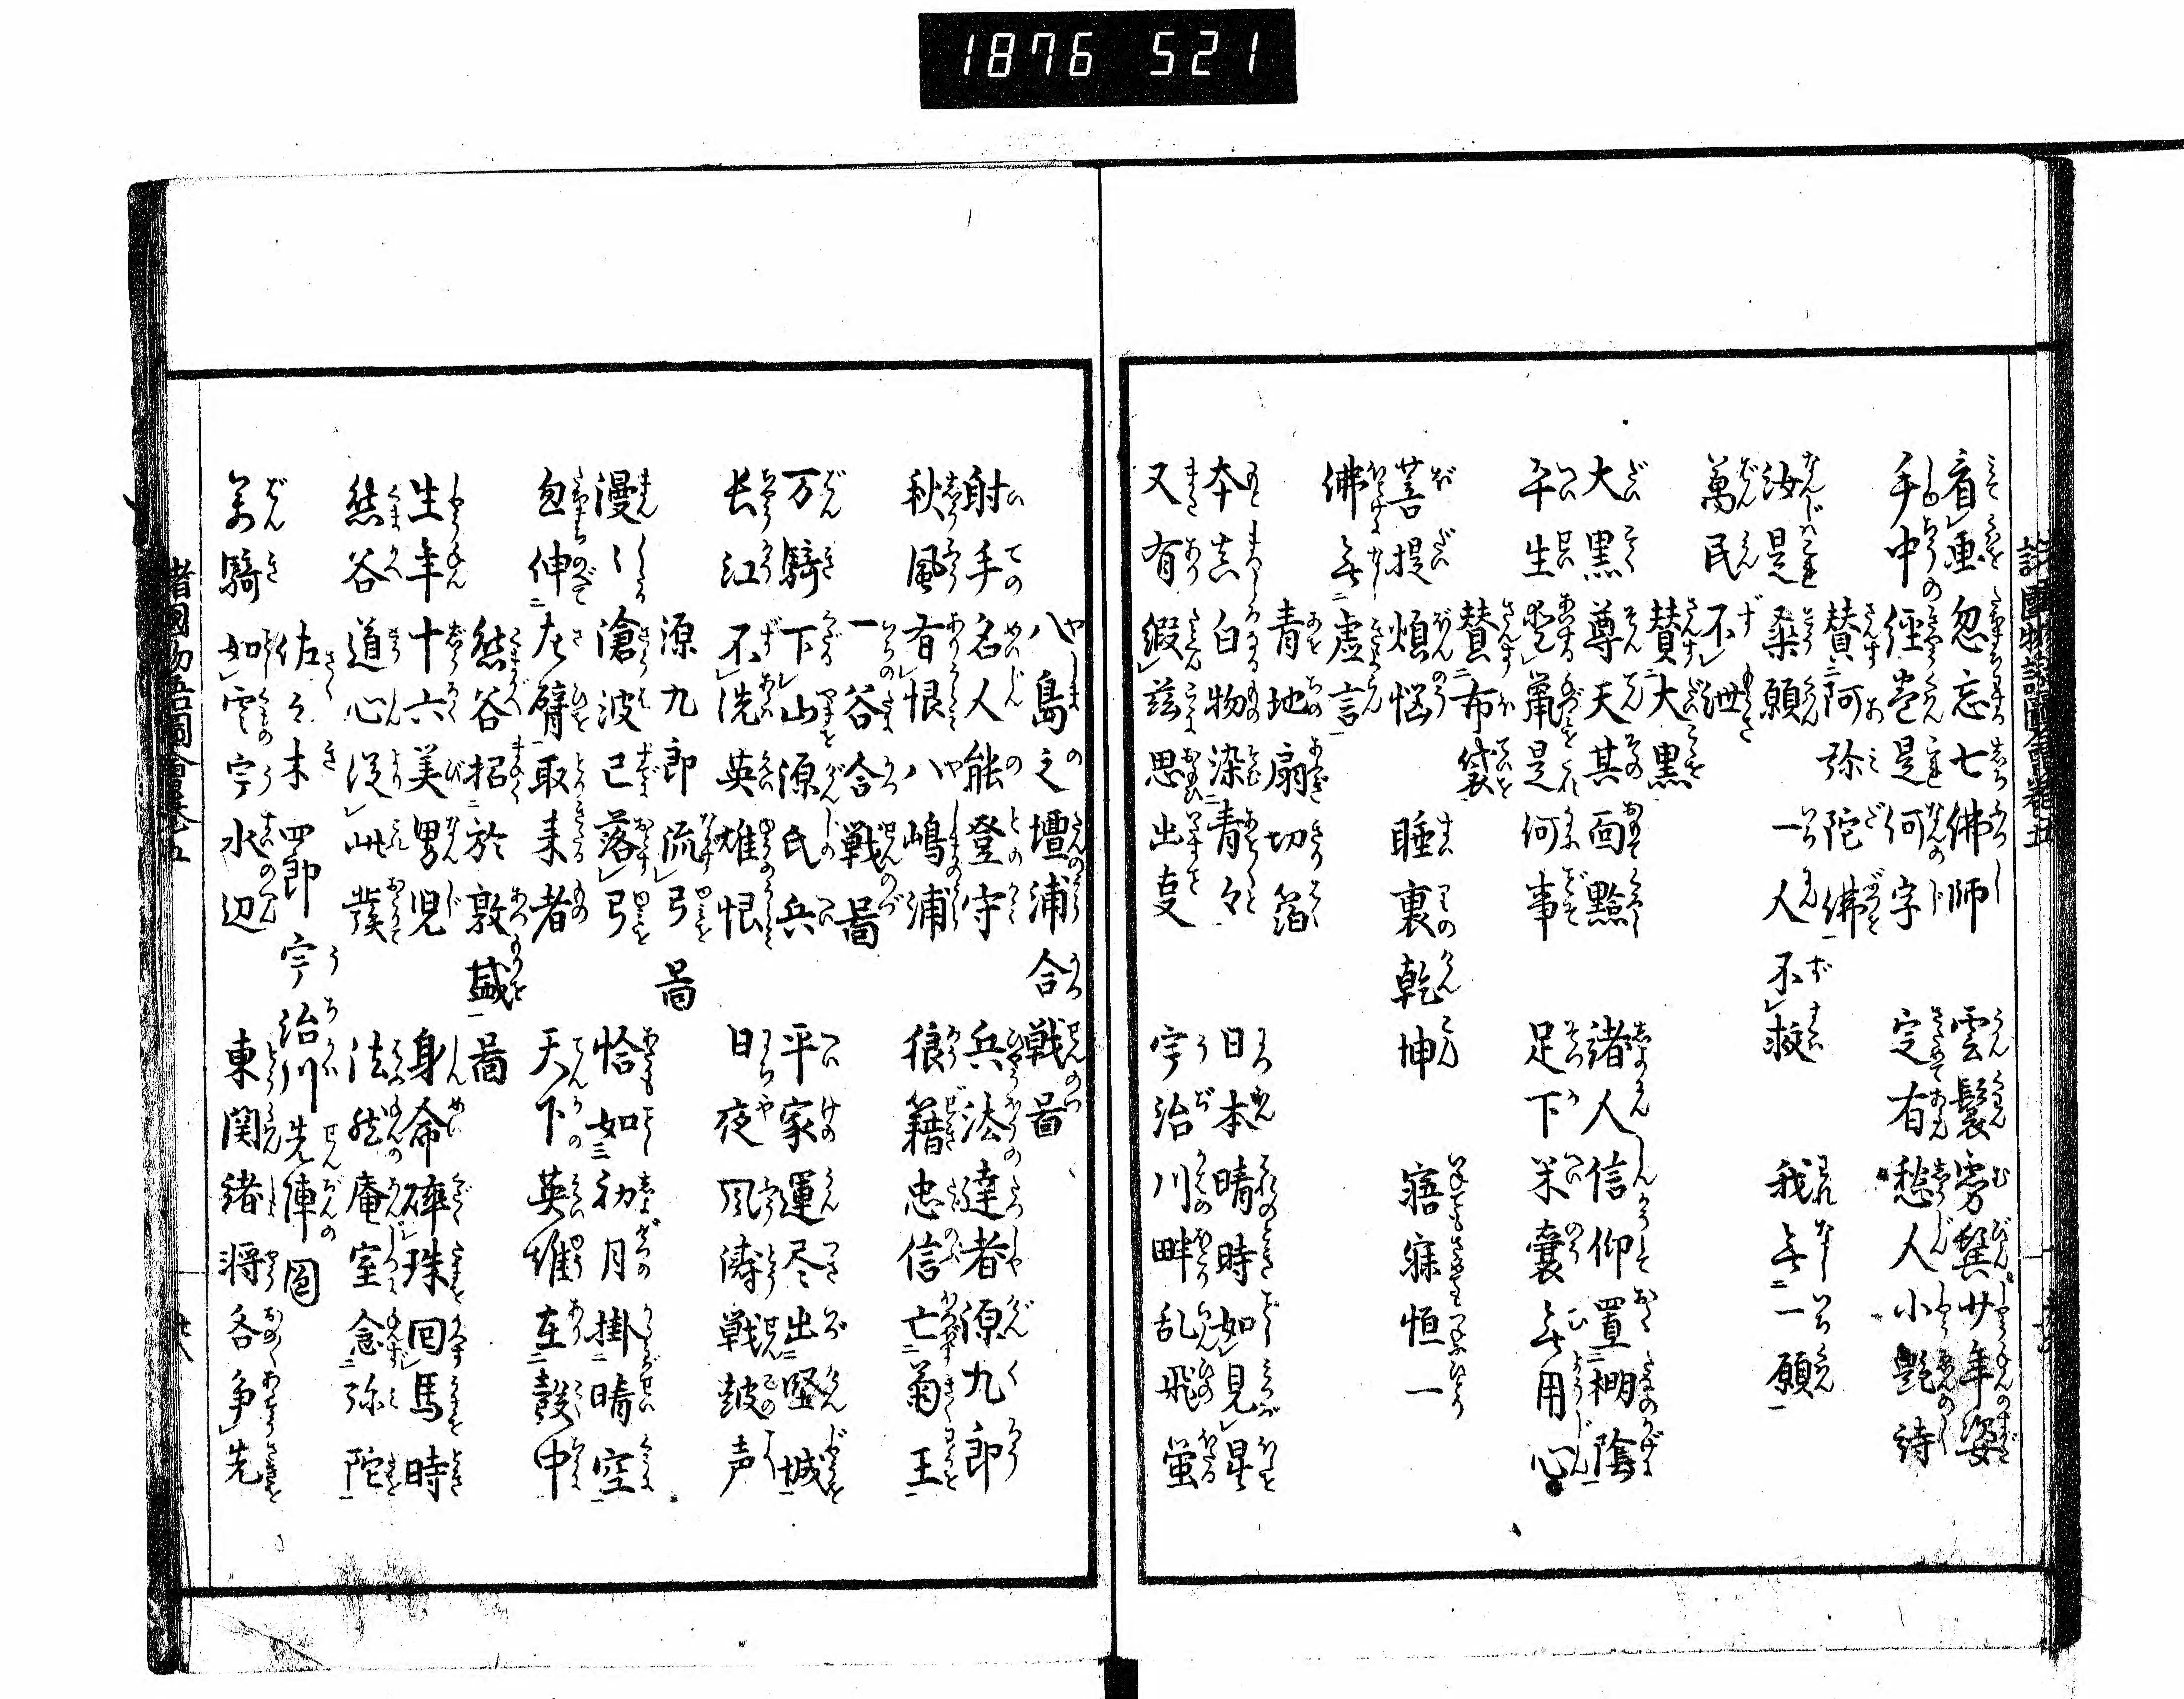 1876 521
看画忽忘七佛師 雲鬟霧鬢廿年姿
手中経巻是何字 定有愁人小艶詩
賛阿弥陀佛
汝是桑願一人不救 我無一願
萬民不泄
賛大黒
大黒尊天其面黯 諸人信仰置棚陰
平生愛鼠是何事 足下米嚢無用心
賛布袋
菩提煩悩 睡裏乾坤 寤寐恒一
佛無虚言
青地扇切箔
本来白物染青々 日本晴時如見星
又有縀茲思出支 宇治川畔乱飛蛍
八島之壇浦合戦啚
射手名人能登守 兵法達者源九郎
秋風有恨八嶋浦 狼籍忠信亡菊王
一谷合戦啚
万騎下山源氏兵 平家運尽出堅城
长江不洗英雄恨 日夜风涛戦鼓声
源九郎流弓啚
漫〻滄波已落弓 恰如初月掛晴空
忽伸左臂取来者 天下英雄在彀中
熊谷招於敦盛啚
生年十六美男児 身命砕珠回馬時
熊谷道心従此發 法然庵室念弥陀
佐々木四郎宇治川先陣圖
萬騎如雲宇水辺 東関緒将各争先
諸國物語圖會巻五